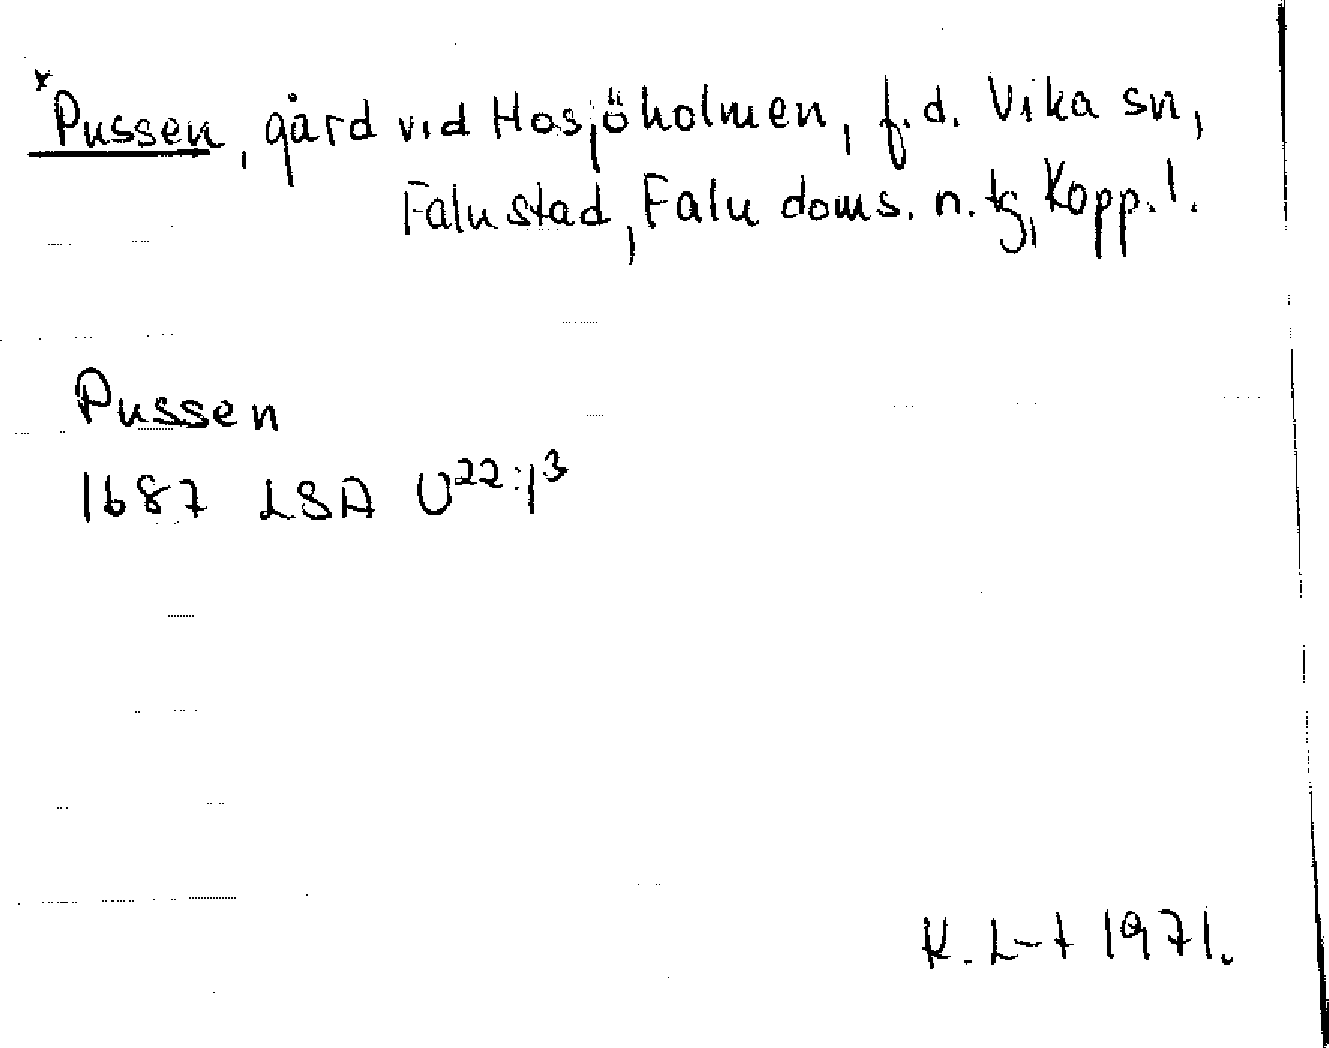 *Pussen, gård vid Hosjöholmen, f.d. Vika sn,
Falu stad, Falu doms. n. tg, Kopp. l.
Pussen
1687 LSA U²²:1³
K. L-t 1971.